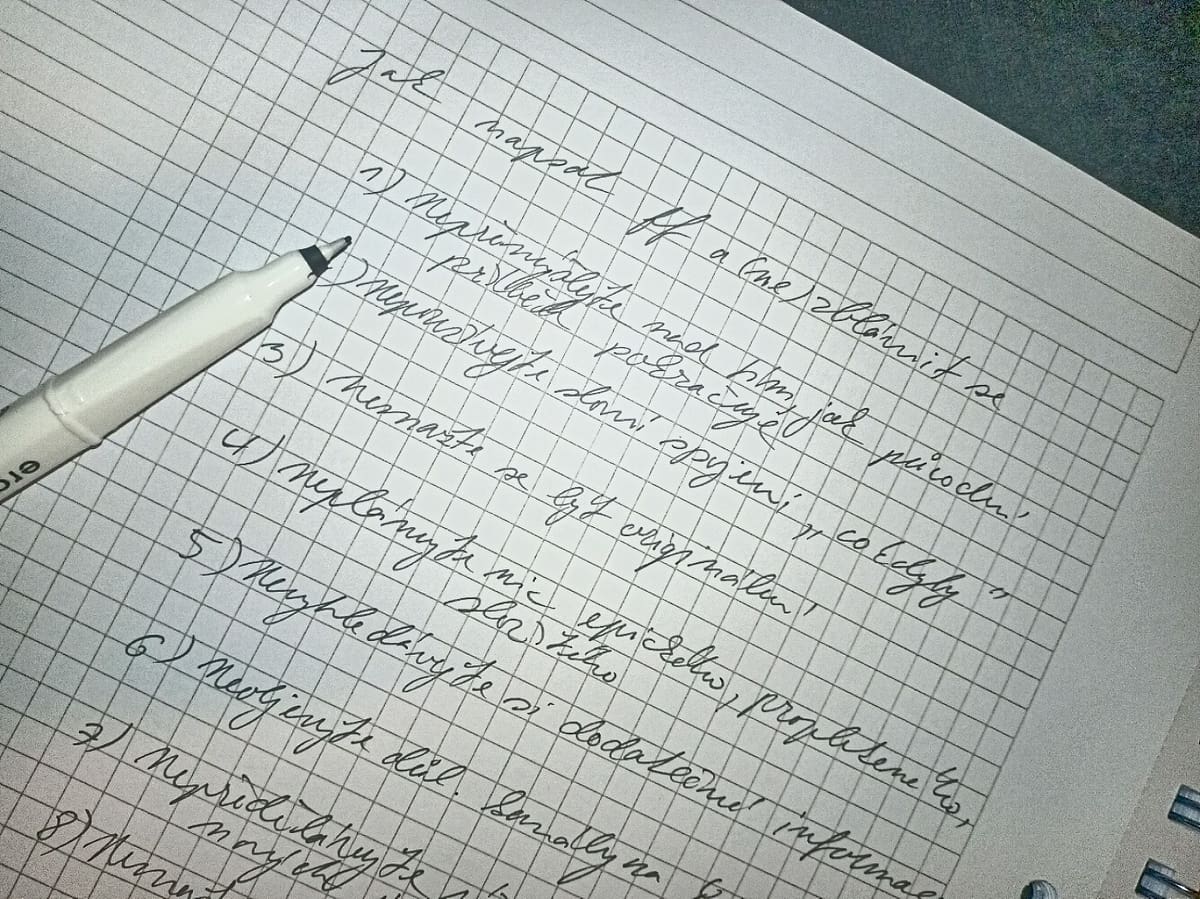 Jak napsat ff a (ne)zbláznit se
1) Nepřemýšlejte nad tím, jak původní
příběh pokračuje
2) Nepoužívejte slovní spojení „co kdyby"
3) Nesnažte se být originální
4) Neplánujte nic epického, propleteného,
složitého
5) Nevyhledávejte si dodatečné informac
6) Neobjevujte důl.
7) Nepřidělávejte
8)